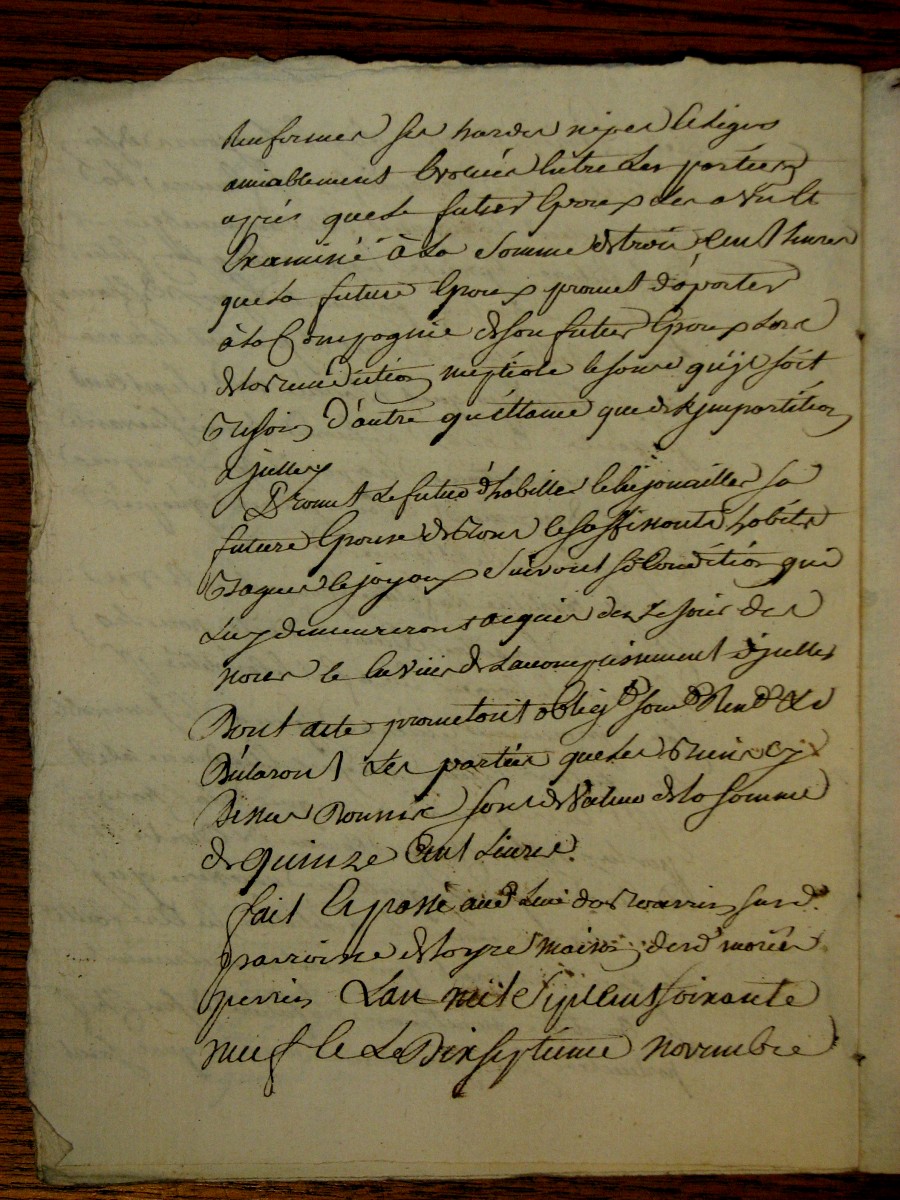 renfermer ses hardes nipes et linges
amiablement évoluée entre les parties
après que le futur Epoux les a vu et
Examiné à la somme de trois cent livres
que la future Epoux promet d'aporter
à la Compagnie de son futur Epoux lors
de la Bénédiction nuptiale le sans qu'il soit
Besoin d'autre quittance que de l'impartition
d'jcelle
Promet le futur d'habiller et bijouailler sa
future Epouse de Bons et suffisants habits
Bagues et joyaux suivant sa Condition qui
luy demeureront acquis des le jour des
noces et en vüe de l'accomplissement d'jcelles
Dont acte prometant obligt soumt Renct &a
Déclarant les parties que les Biens cy
Dessus Donnés sont de valeur de la somme
de quinze Cent Livres.
fait et passé aud. lieu susd.
parroisse de maison de sd. mariés
perrin L'an mil Sept Cent soixante
neuf et le Dix septieme novembre